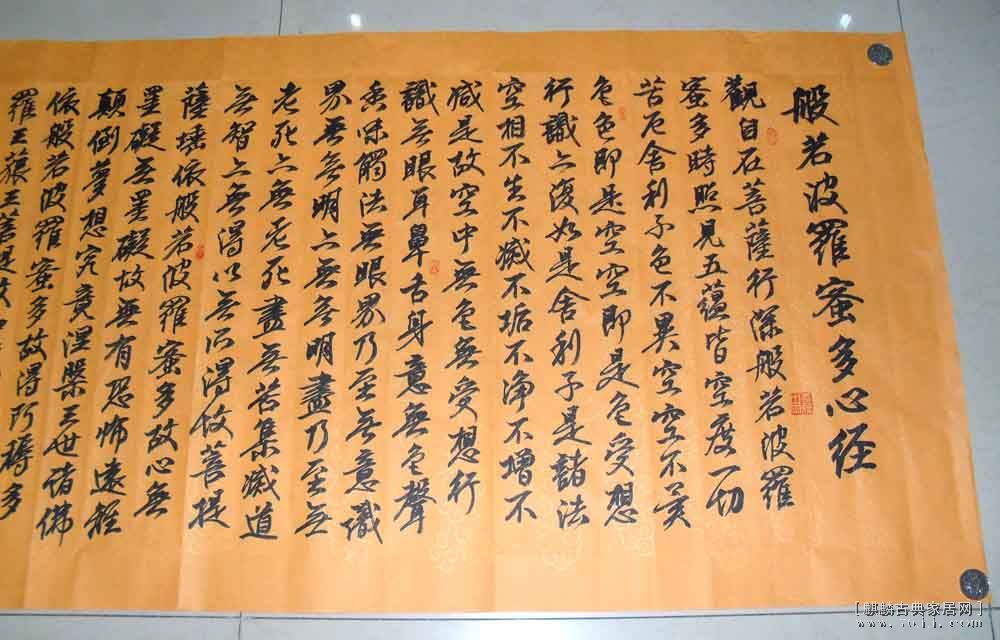 般若波羅蜜多心经
觀自在菩薩行深般若波羅
蜜多時照見五蕴皆空度一切
苦厄舍利子色不異空空不異
色色即是空空即是色受想
行識亦復如是舍利子是諸法
空相不生不滅不垢不净不增不
减是故空中無色無受想行
識无眼耳鼻舌身意無色聲
香味觸法无眼界乃至无意識
界無无明亦無无明盡乃至無
老死亦無老死盡無苦集滅道
无智亦無得以无所得故菩提
薩埵依般若波羅蜜多故心無
罣礙無罣礙故無有恐怖遠離
顛倒夢想究竟涅槃三世诸佛
依般若波羅蜜多故得阿耨多
羅三藐三菩提故
[麒麟古典家居网]
www.7ojj.com